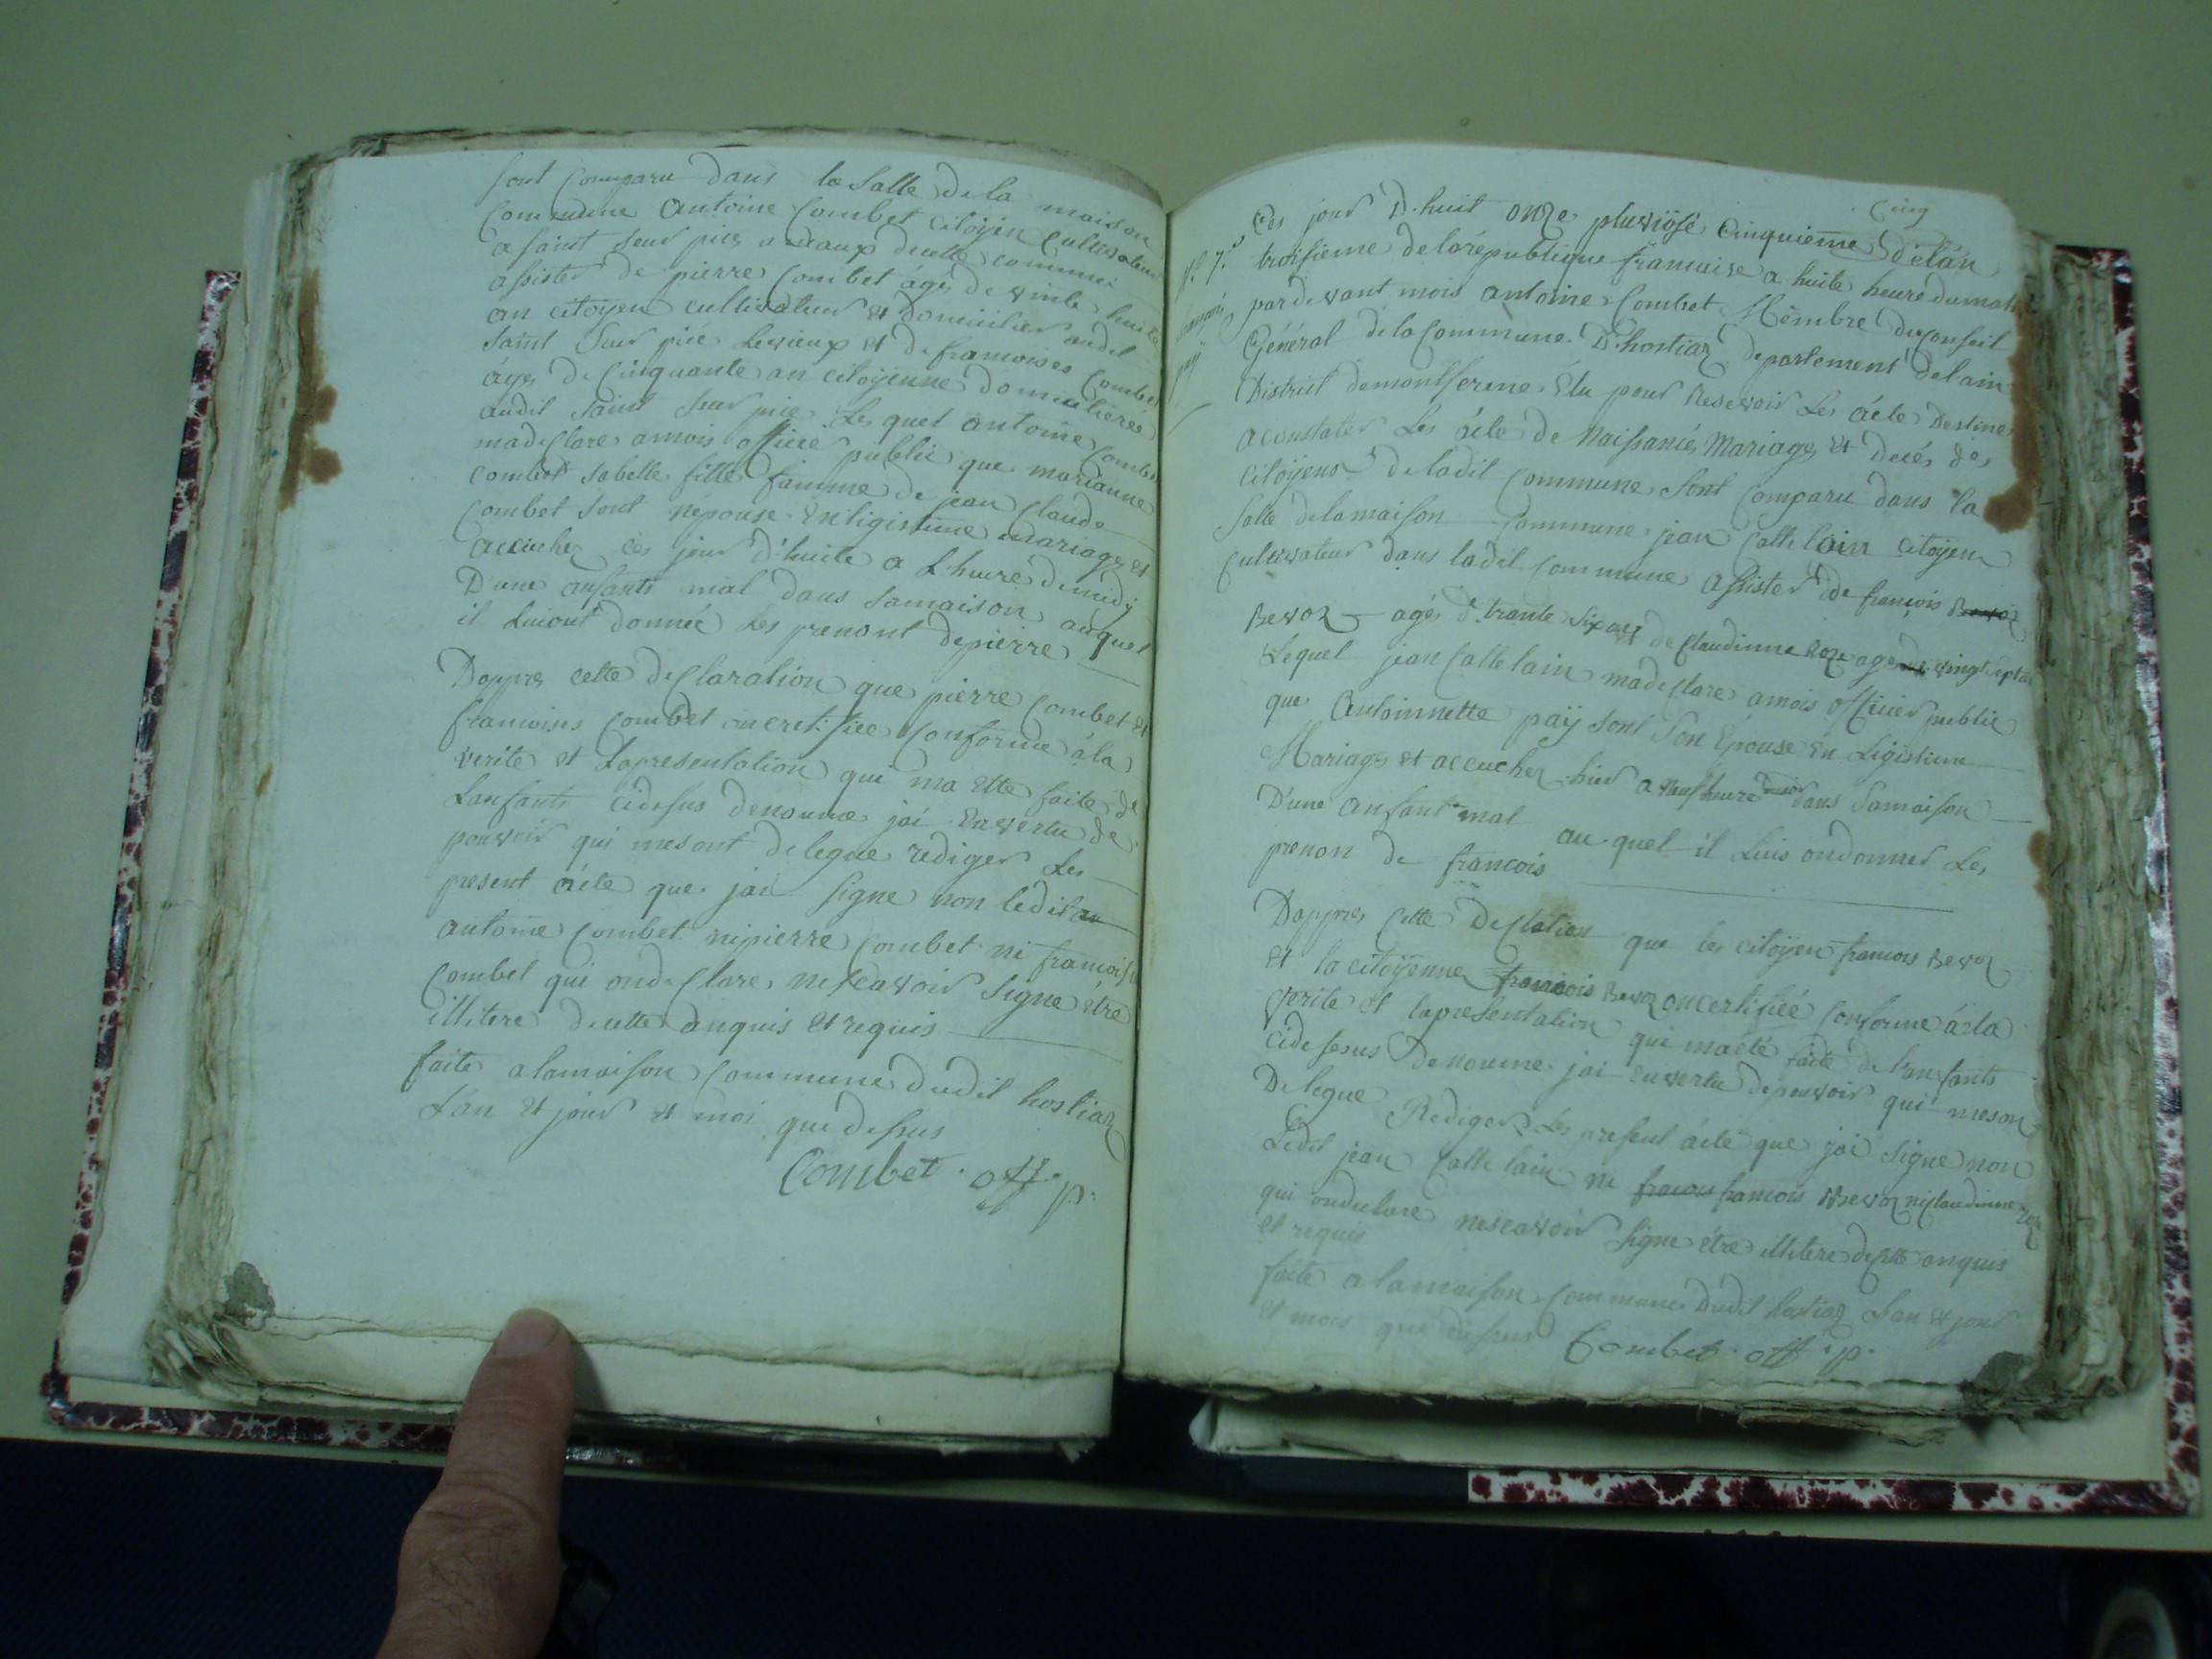 sont Comparu dans la Salle de la maison
Commune antoine Combet Citoyen Cultivateur
a saint seur pies a deaux dcette commune
assister de pierre Combet âgé de vint huite
an citoyen cultivateur et domicilier audit
saint seur pié Levieux et de francoises Combet
âges de Cinquante an citoÿenne domicilierée
audit saint seur pie Les quel antoine Combet
madeclare amois officié public que marianne
Combet sabelle fille famme de jean Claude
Combet sont népouse En ligistime mariage et
accucher ces jour d'huite a L'heure de midÿ
D'une anfants mal dans samaison auquel
il Luiont donnée Les prenont depierre
Dappres cette deClaration que pierre Combet et
francoises Combet oncretifiée Conforme á la
verite et Lapresentation qui ma Ette faite de
Lanfants cidesus denoume jái En vertu de
pouvoir qui mesont delegue rediger Les
present ácte que jai signe non ledit an
antoine Combet nipierre Combet ni francoise
Combet qui ondeClare nescavoir signe être
illitere dcette anquis et requis
faite alamaison Commune dudit hostiaz
Lan et jour et moi que dessus
Combet off p.
Cinq
N.o 7.
françois
paÿ
Ces jour D'huit onze pluviôse Cinquieme délan
troisieme delarépublique francaise a huite heure dumat
pardevant mois antoine Combet Membre duconseil
Général de la Commune D'hostiaz departement delain
District demontferme Elu pour Resevoir Les ácte Destine
aconstater Les ácte de Naissances Mariage et décés des
Citoÿens deladit Commune sont Comparu dans la
salle delamaison Commune jean Cattelain citoÿen
Cultivateur dans ladit Commune assister de françois Bevoz
Bevoz agés de trante six ans et de Claudinne Roze age de vingt sept an
Lequel jean Cattelain madeclare amois officier public
que Antoinnette paÿ sont son Épouse En Ligistime
Mariage et accucher hier a neuf heure du soir dans Samaison
D'une anfant mal au quel il Luis ondonner Les
prenon de francois
Dappres Cette DeClation que les citoyen francois Bevoz
et la citoÿenne francois Bevoz oncertifiée Conforme á la
verite et lapresentation qui maété faite de l'anfants
cidesesus Denoume jai En vertu depouvoir qui meson
Delegue Rediger Les present ácte que jai signe non
Ledit jean Cattelain ni francois francois Bevoz niClaudinne Roze
qui ondeclare nescavoir signe étre illitere decette anquis
et requis
faite alamaison Commune dudit hostiaz Lan et jour
et mois que dessus Combet off p.